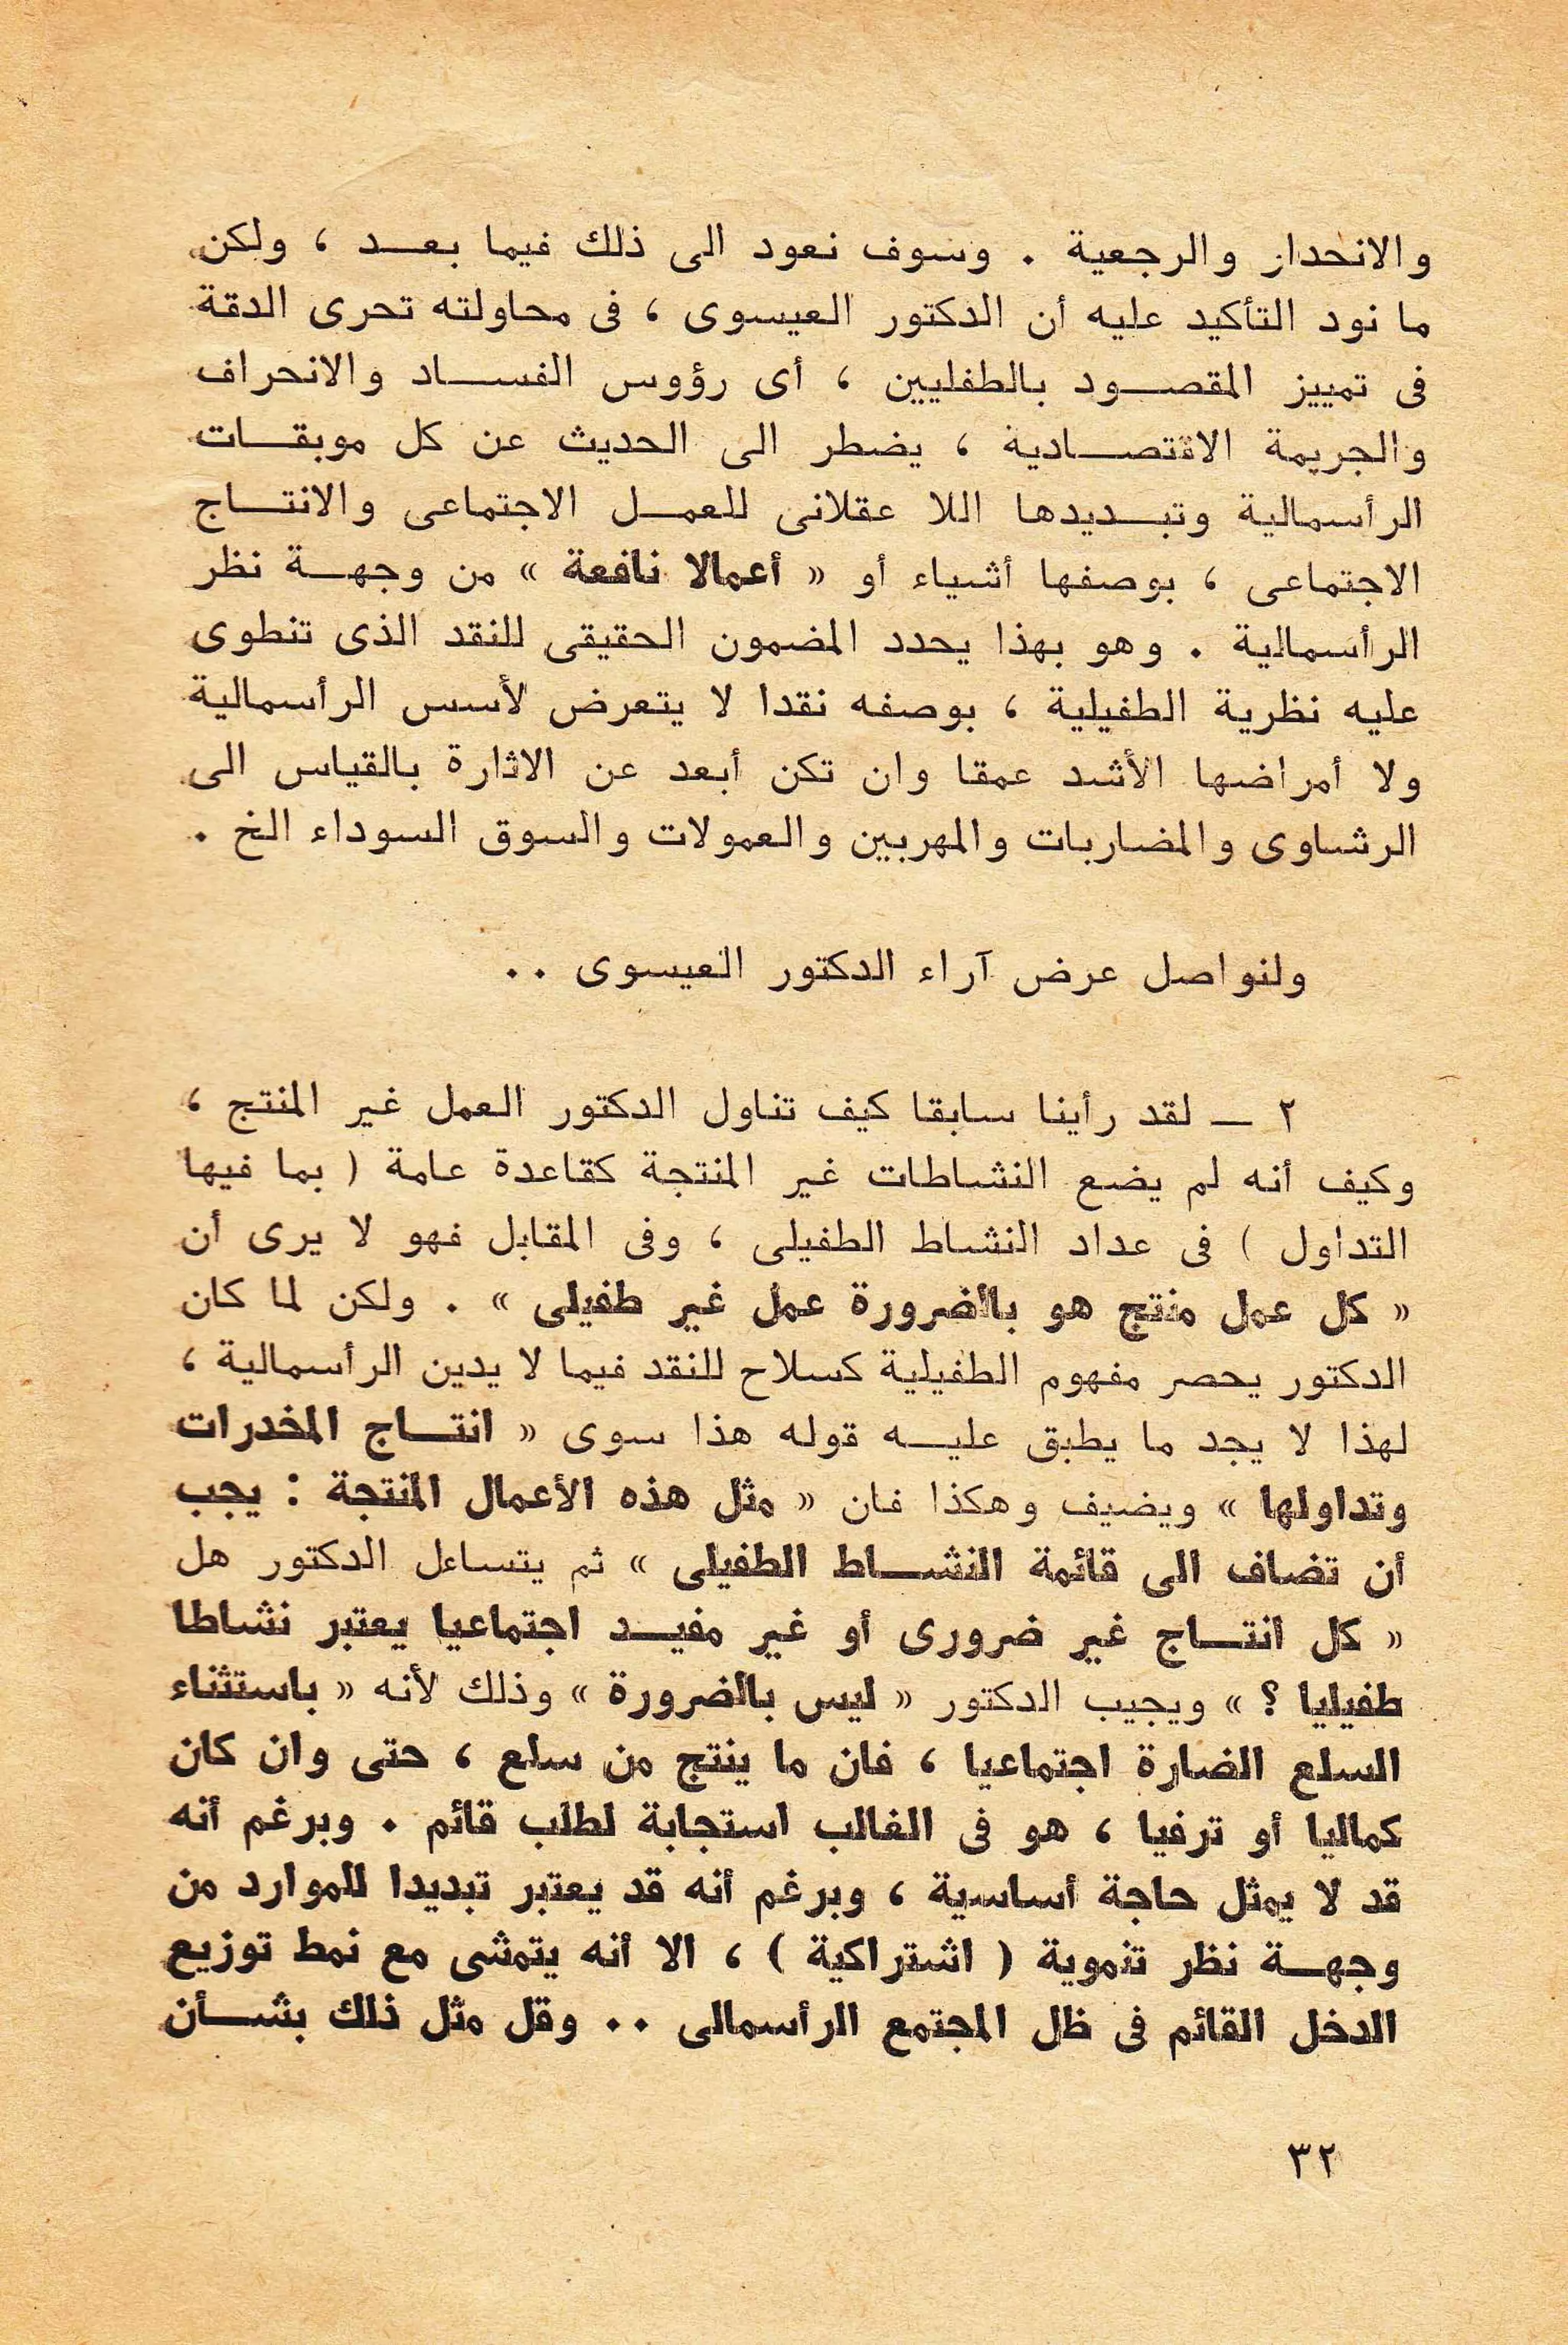 والانحدار والرجعية . وسوف نعود الى ذلك فيما بعـد ، ولكن
ما نود التأكيد عليه أن الدكتور العيسوى ، فى محاولته تحرى الدقة
فى تمييز المقصـود بالطفليين ، أى رؤوس الفسـاد والانحراف
والجريمة الاقتصـادية ، يضطر الى الحديث عن كل موبقـات
الرأسمالية وتبـديدها اللا عقلانى للعمـل الاجتماعى والانتـاج
الاجتماعى ، بوصفها أشياء أو « أعمالا نافعة » من وجهـة نظر
الرأسمالية . وهو بهذا يحدد المضمون الحقيقى للنقد الذى تنطوى
عليه نظرية الطفيلية ، بوصفه نقدا لا يتعرض لأسس الرأسمالية
ولا أمراضها الأشد عمقا وان تكن أبعد عن الاثارة بالقياس الى
الرشاوى والمضاربات والمهربين والعمولات والسوق السوداء الخ .
ولنواصل عرض آراء الدكتور العيسوى ..
٢ ــ لقد رأينا سابقا كيف تناول الدكتور العمل غير المنتج ،
وكيف أنه لم يضع النشاطات غير المنتجة كقاعدة عامة ( بما فيها
التداول ) فى عداد النشاط الطفيلى ، وفى المقابل فهو لا يرى أن
« كل عمل منتج هو بالضرورة عمل غير طفيلى » . ولكن لما كان
الدكتور يحصر مفهوم الطفيلية كسلاح للنقد فيما لا يدين الرأسمالية ،
لهذا لا يجد ما يطبق عليـه قوله هذا سوى « انتـاج المخدرات
وتداولها » ويضيف وهكذا فان « مثل هذه الأعمال المنتجة : يجب
أن تضاف الى قائمة النشـاط الطفيلى » ثم يتساءل الدكتور هل
« كل انتـاج غير ضرورى أو غير مفيـد اجتماعيا يعتبر نشاطا
طفيليا ؟ » ويجيب الدكتور « ليس بالضرورة » وذلك لأنه « باستثناء
السلع الضارة اجتماعيا ، فان ما ينتج من سلع ، حتى وان كان
كماليا أو ترفيا ، هو فى الغالب استجابة لطلب قائم . وبرغم أنه
قد لا يمثل حاجة أساسية ، وبرغم أنه قد يعتبر تبديدا للموارد من
وجهـة نظر تنموية ( اشتراكية ) ، الا أنه يتمشى مع نمط توزيع
الدخل القائم فى ظل المجتمع الرأسمالى .. وقل مثل ذلك بشـأن
٣٢